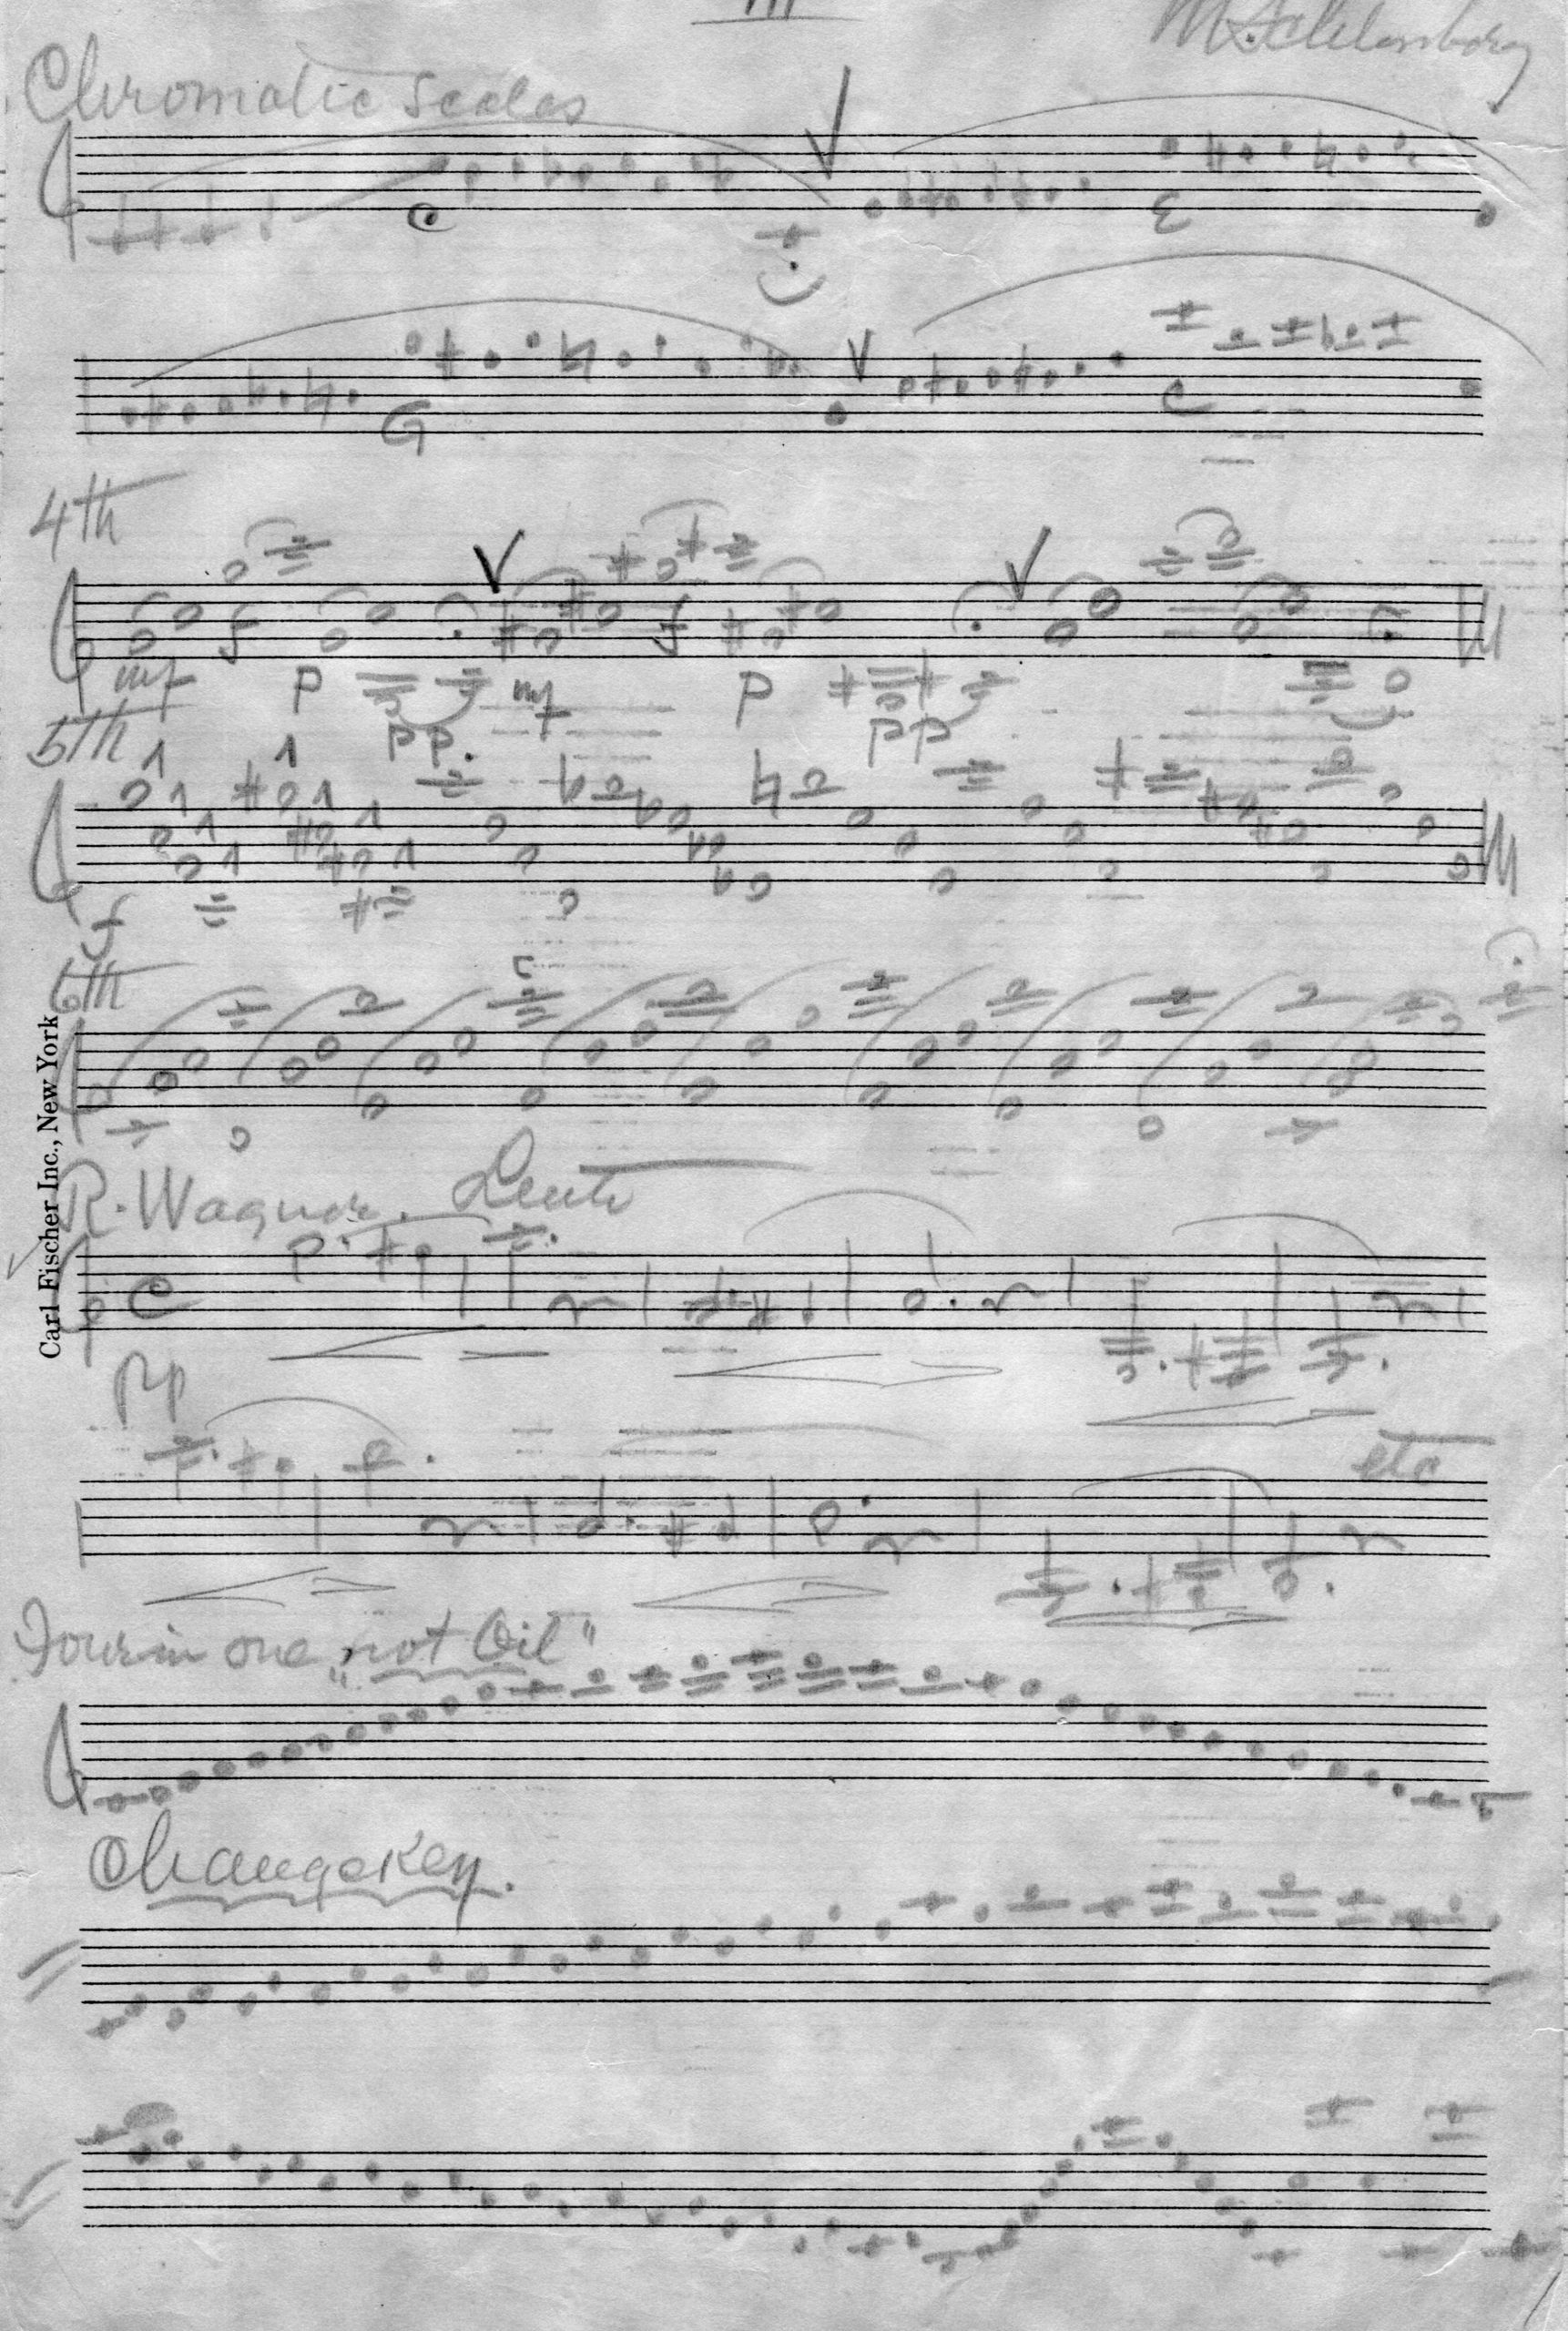 III
M. Schlossberg
Chromatic Scales
C
E
G
C
4th
mf f P PP. mf f P PP
5th
f
6th
R. Wagner. Lento
C
PP
etc
Four in one "not Oil"
Change Key.
Carl Fischer Inc., New York